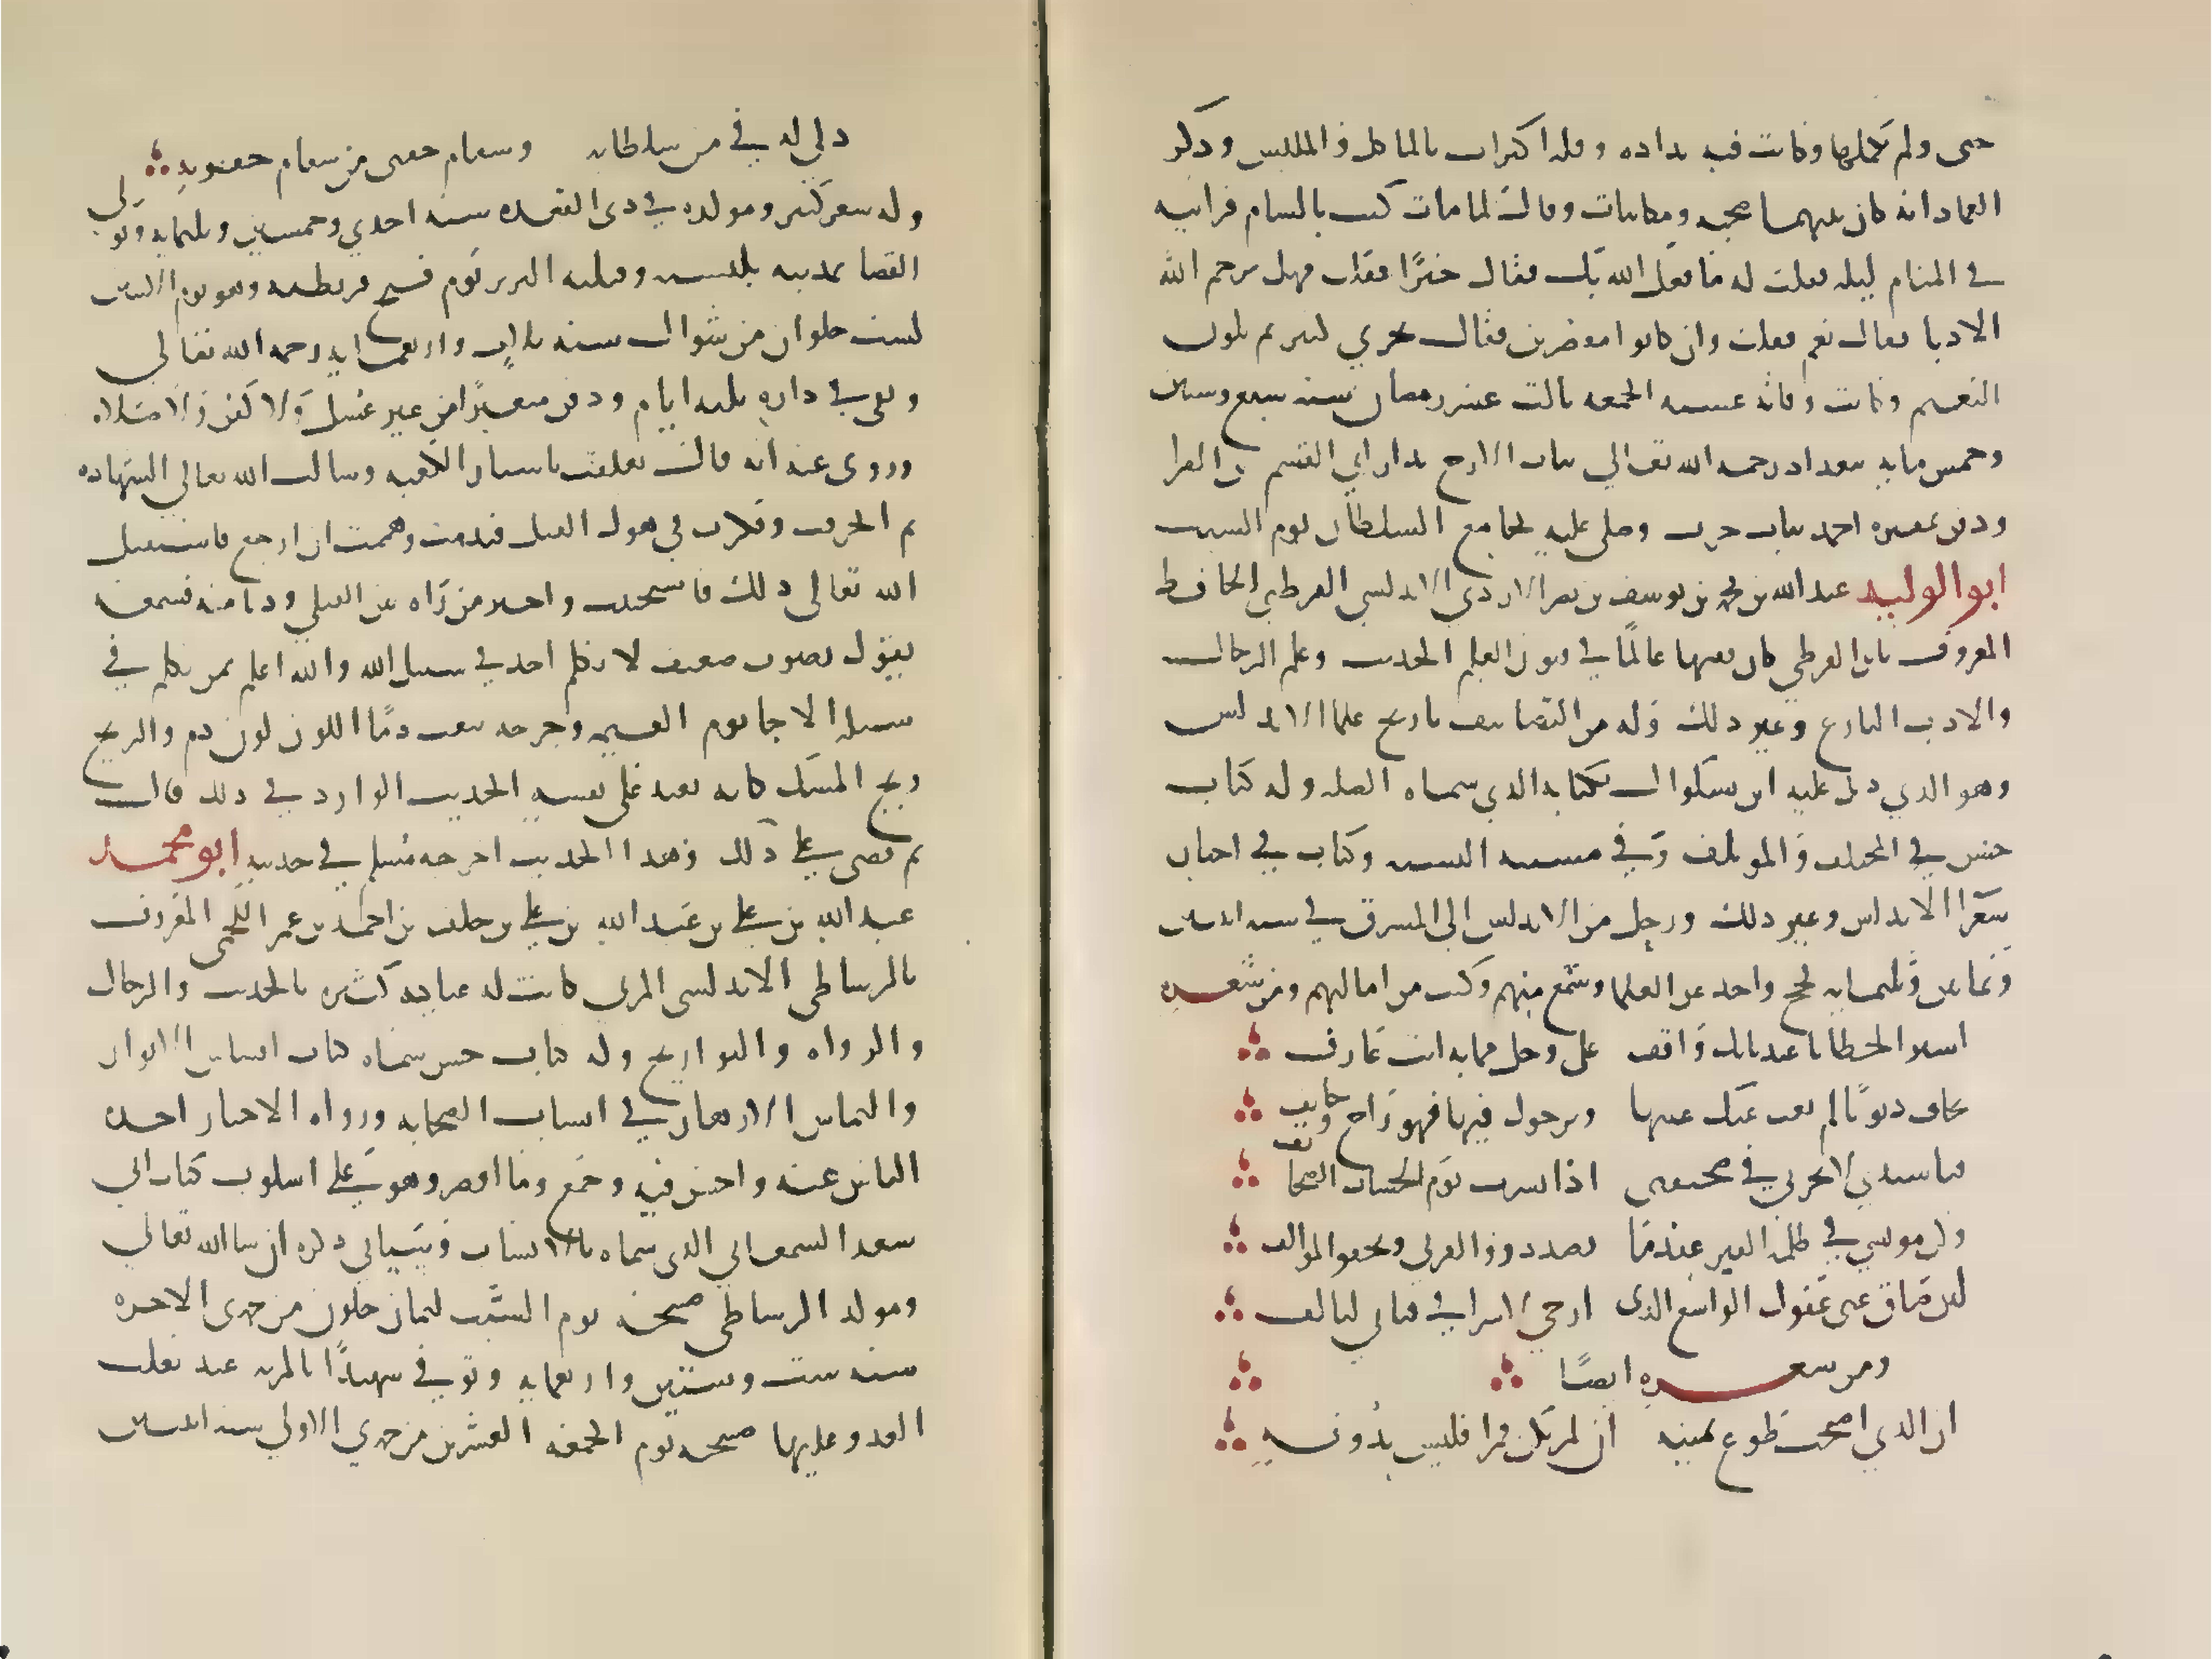 حتى ولم يكملها وكانت فيه بداده وقله اكتراث بالماكل والملبس وذكر
العماد انه كان بينهما صحبه ومكاتبات وقال لما مات كنت بالشام فرايته
في المنام ليله فقلت له ما فعل الله بك فقال خيرًا فقلت فهل يرحم الله
الادبا فقال نعم فقلت وان كانوا مقصرين فقال يجري لهم ثم يكون
النعيم وكانت وفاته عشيه الجمعه ثالث عشر رمضان سنه سبع وستين
وخمس مايه ببغداد رحمه الله تعالي بباب الازج بدار ابي القسم بن الفرا
ودفن بمقبره احمد بباب حرب وصلي عليه بجامع السلطان يوم السبت
ابو الوليد عبد الله بن محمد بن يوسف بن نصر الازدي الاندلسي القرطبي الحافظ
المعروف بابن الفرضي كان فقيها عالمًا في فنون العلم الحديث وعلم الرجال
والادب البارع وغير ذلك وله من التصانيف تاريخ علما الاندلس
وهو الذي ذيل عليه ابن بشكوال بكتابه الذي سماه الصله وله كتاب
حسن في المختلف والموتلف وفي مشتبه النسبه وكتاب في اخبار
شعرا الاندلس وغير ذلك ورحل من الاندلس الي المشرق في سنه اثنتين
وثمانين وثلثمايه فحج واخذ عن العلما وسمع منهم وكتب من اماليهم ومن شعره
اسير الخطايا عند بابك واقف علي وجل مما به انت عارف
يخاف ذنوبًا لم يغب عنك غيبها ويرجوك فيها فهو راج وخايف
فيا سيدي لا تخزني في صحيفتي اذا نشرت يوم الحساب الصحايف
وكن مونسي في ظلمه القبر عندما يصد ذوو القربي ويجفو الموالف
لين ضاق عني عفوك الواسع الذي ارجي لاسرافي فاني لتالف
ومن شعره ايضًا
ان الذي اصبحت طوع يمينه ان لم يكن قمرا فليس بدونه
ذلي له في من سلطانه وسقام جسمي من سقام جفونه
وله شعر كثير ومولده في ذي القعده سنه احدي وخمسين وثلثمايه وتولي
القضا بمدينه بلنسيه وقتلته البربر يوم فتح قرطبه وهو يوم الاثنين
لست خلون من شوال سنه ثلاث واربعمايه رحمه الله تعالي
وبقي في داره ثلثه ايام ودفن متغيرًا من غير غسل ولا كفن ولا صلاه
وروي عنه انه قال تعلقت باستار الكعبه وسالت الله تعالي الشهاده
ثم انحرفت وفكرت في هول القتل فندمت وهممت ان ارجع فاستقيل
الله تعالي ذلك فاستحييت واخبر من راه بين القتلي ودنا منه فسمعه
يقول بصوت ضعيف لا يكلم احد في سبيل الله والله اعلم بمن يكلم في
سبيله الا جا يوم القيمه وجرحه يثعب دمًا اللون لون دم والريح
ريح المسك كانه يعيد علي نفسه الحديث الوارد في ذلك قال
ثم قضي علي ذلك وهذا الحديث اخرجه مسلم في حديثه ابو محمد
عبد الله بن علي بن عبد الله بن علي بن خلف بن احمد بن عمر اللخمي المعروف
بالرشاطي الاندلسي المري كانت له عنايه كثيره بالحديث والرجال
والرواه والتواريخ وله كتاب حسن سماه كتاب اقتباس الانوار
والتماس الازهار في انساب الصحابه ورواه الاخبار اخذه
الناس عنه واحسن فيه وجمع وما اقصر وهو علي اسلوب كتاب ابي
سعد السمعاني الذي سماه بالانساب وسياتي ذكره ان شا الله تعالي
ومولد الرشاطي صبيحه يوم السبت لثمان خلون من جمدي الاخره
سنه ست وستين واربعمايه وتوفي شهيدًا بالمريه عند تغلب
العدو عليها صبيحه يوم الجمعه العشرين من جمدي الاولي سنه اثنتين